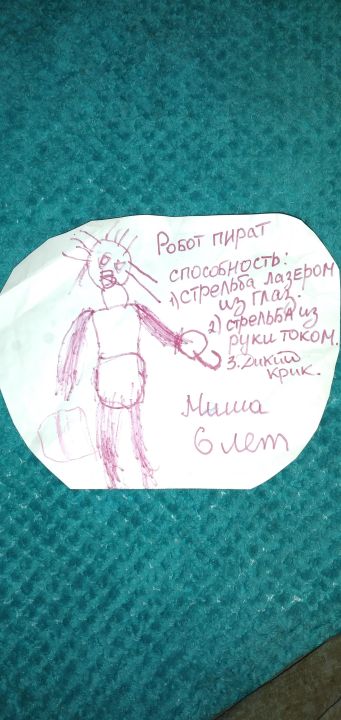 Робот пират
способность:
1) стрельба лазером
из глаз.
2) стрельба из
руки током.
3. Дикий
крик.
Миша
6 лет